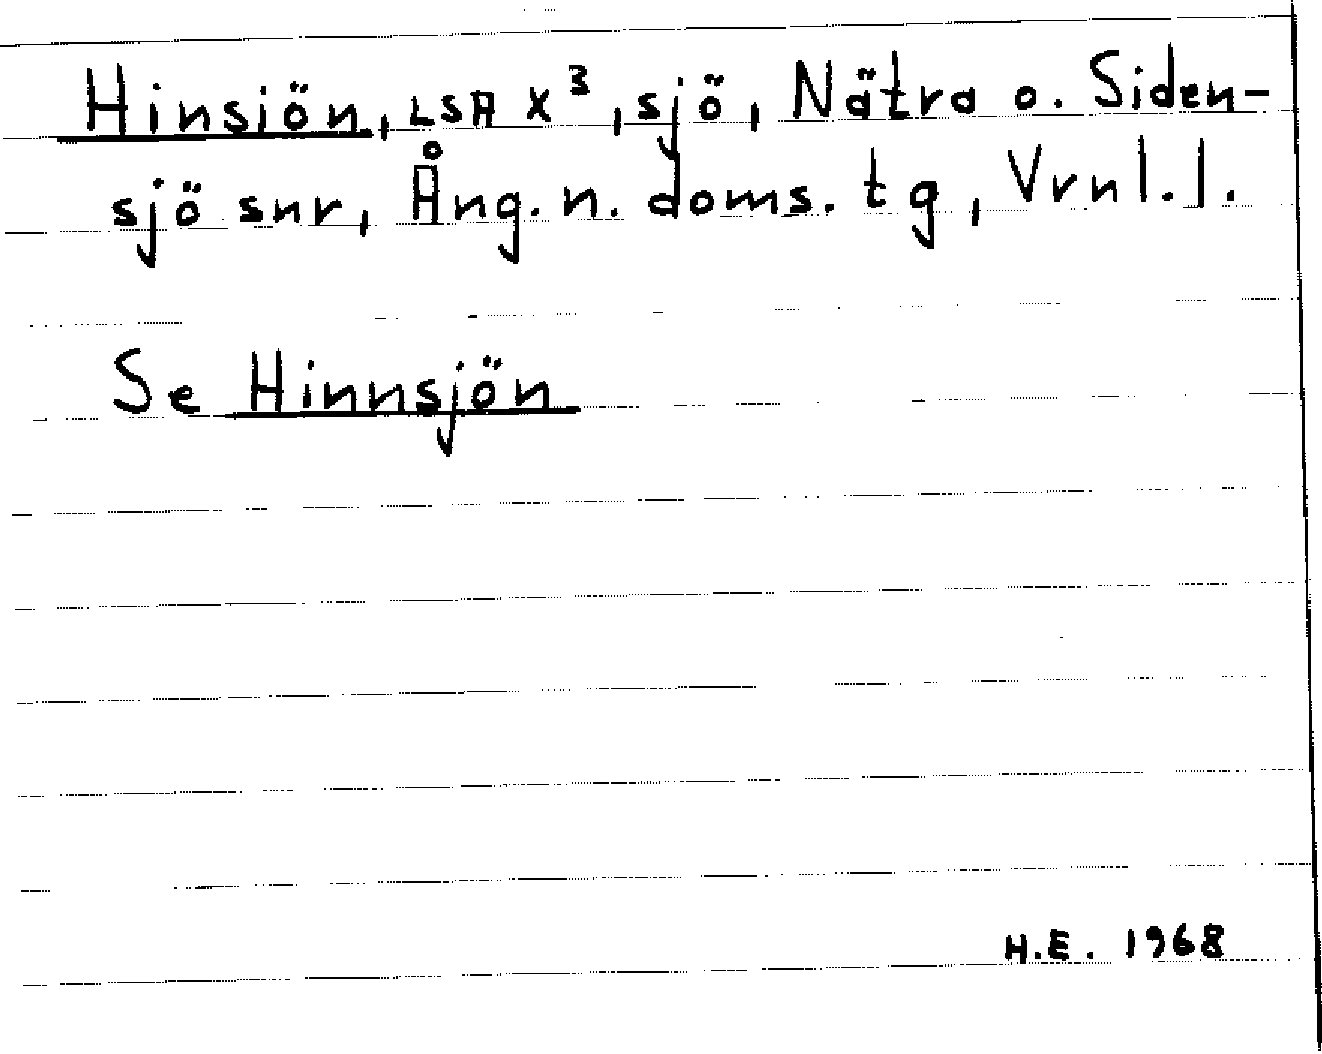 Hinsiön, LSA X³, sjö, Nätra o. Siden-
sjö snr, Ång. n. doms. tg, Vrnl. l.
Se Hinnsjön
H.E. 1968